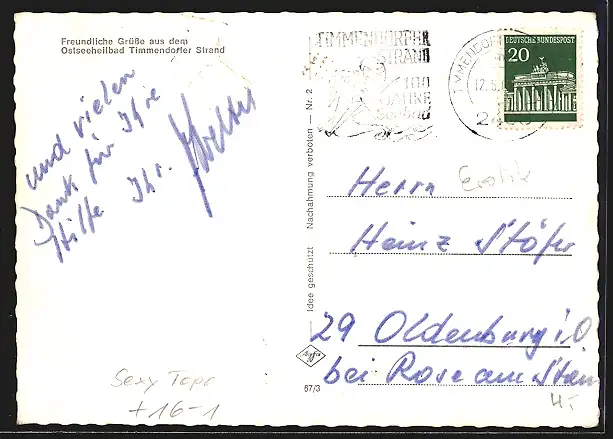 Freundliche Grüße aus dem
Ostseeheilbad Timmendorfer Strand
und vielen
Dank für Ihre
Hilfe Ihr.
Sexy Topo
+16-1
Idee geschützt Nachahmung verboten — Nr. 2
67/3
TIMMENDORFER
STRAND
100
JAHRE
TIMMENDORF
17.5.
24
DEUTSCHE BUNDESPOST
20
Erotik
Herrn
Heinz Stöfer
29 Oldenburg i. O
bei Rose am Stau
4,-